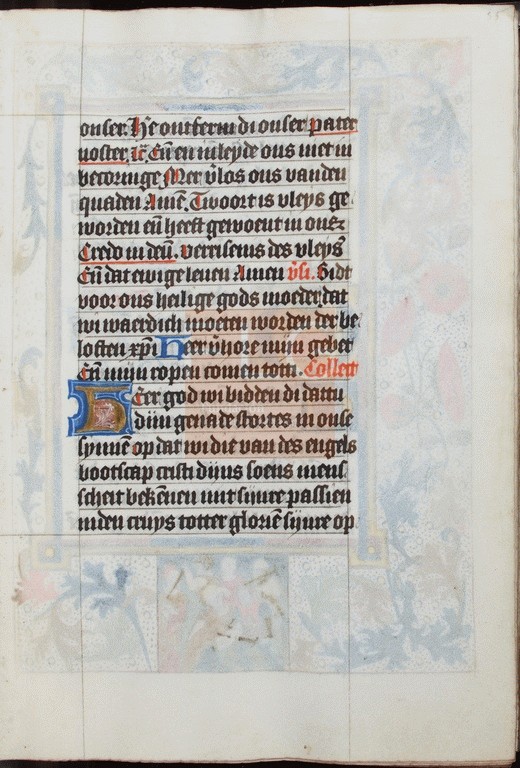 onser. He ontferm di onser pater
noster. ic̄ Eñ en inleyde ons niet in
becoringe Mer v̄los ons vanden
quaden Amē. Twoort is vleys ge
worden eñ heeft gewoent in ons
Credo in deū. verrisenis des vleys̄
Eñ dat ewige leuen Amen v̄si. Bidt
voor ons heilige gods moeder, dat
wi waerdich moeten worden der be
loften xp̄i Heer v̄hore mijn gebet
Eñ mijn ropen comen tot ti. Collect
HEer god wi bidden di dattu
dijn genade stortes in onse
synnē op dat wi die van des engels
bootscap cristi dijns soens mens
scheit bekēnen mit sijnre passien
inden cruys totter gloriē sijnre op